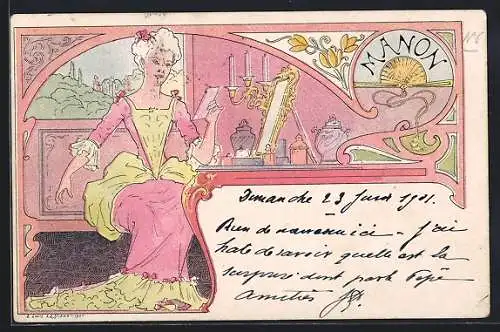 MANON
Dimanche 23 Juin 1901.
Rien de nouveau ici - j'ai
hate de savoir quelle est la
surprise dont parle Pépé
Amitiés